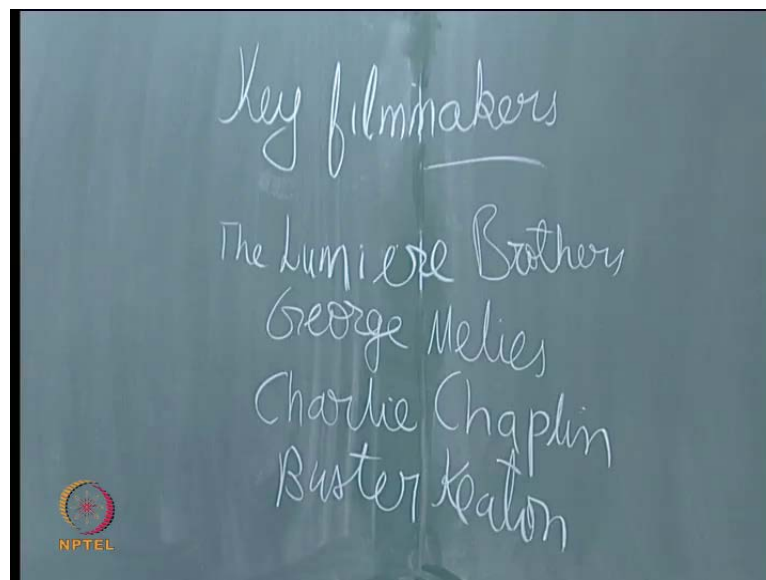 Key filmmakers
The Lumiere Brothers
George Melies
Charlie Chaplin
Buster Keaton
NPTEL